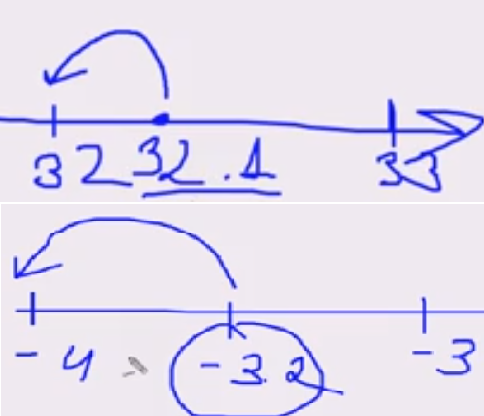 32 32.1 33
-4 -3.2 -3